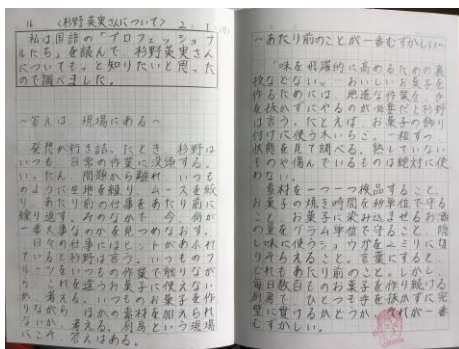 16 〈杉野英実さんについて〉 2 1
私は国語の「プロフェッショナ
ルたち」を読んで、杉野英実さん
についてもっと知りたいと思った
ので調べました。
〜答えは、現場にある〜
発想が行き詰ったとき、杉野は
いつも、日常の作業に没頭する。
いったん、問題から離れ、いつも
のように生地を練り、ムースを絞
り、あたり前の仕事をあたり前に
繰り返す。そのなかで、今、何が
一番大事なのかを見つめなおす。
日々の仕事にはヒントがあふれ
ていると杉野は言う。いつものフ
ルーツをいつもの作業で触りなが
ら、これを違うお菓子に使えない
か、考える。いつものお菓子を作
りながら、ほかの素材を加えられ
ないか、考える。厨房という現場
にこそ、答えはある。
〜あたり前のことが一番むずかしい〜
「味を飛躍的に高めるための裏
技などない。」おいしいお菓子を
作るためには、地道な作業を、手
を抜かずにやるのが必要だと杉野
は言う。たとえば、お菓子の飾り
付けに使う木いちご。一粒ずつ、
状態を見て調べる。熟していない
ものや傷んでいるものは絶対に使
わない。
素材を一つ一つ検品すること。
お菓子の焼き時間を秒単位で守る
こと。お菓子に染み込ませるお酒
の量をグラム単位で守ること。隠
し味に使うショウガを2ミリに切
りそろえること。言葉にすると、
どれもあたり前のこと。しかし、
毎日数百ものお菓子を作り続ける
厨房で、ひとつも手を抜かずに完
璧に貫けるかどうか。それが一番
むずかしい。